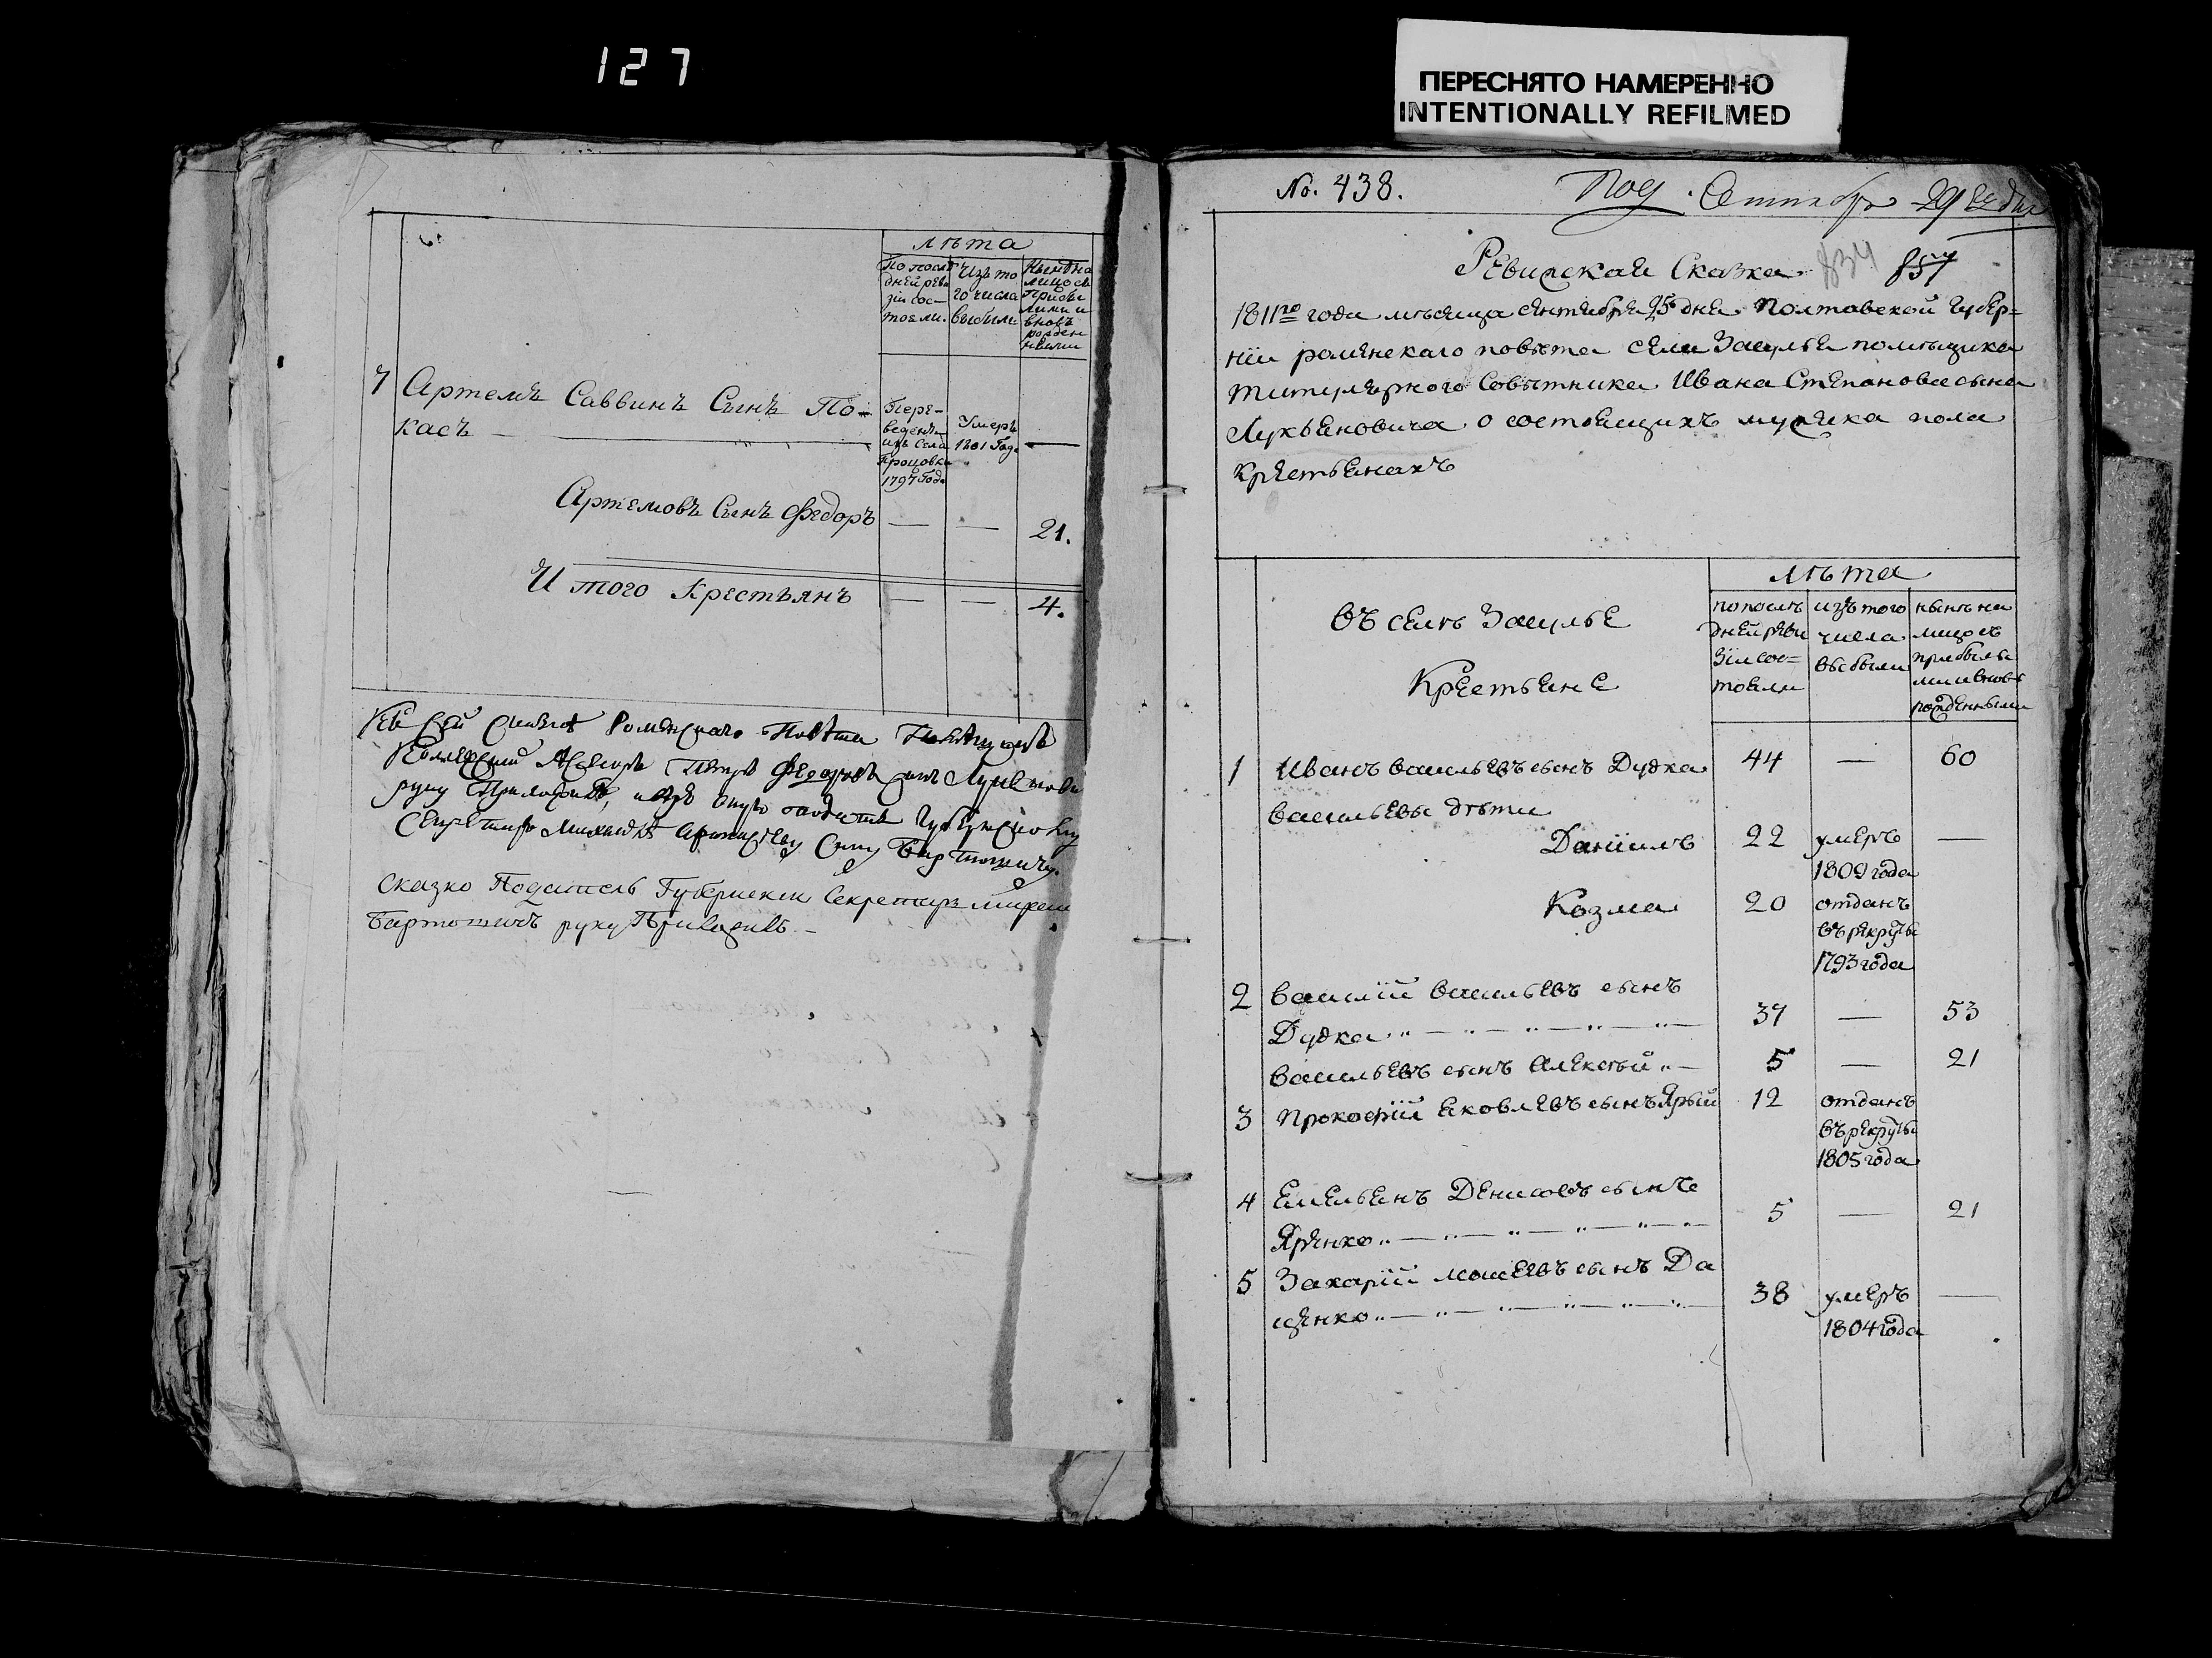 127
ПЕРЕСНЯТО НАМЕРЕННО
INTENTIONALLY REFILMED
лѣта
По послѣдней ревизіи состояли.
Изъ того числа выбыли
Нынѣ на лицо съ прибылими и вновь рожденными
7 Артемъ Саввинъ Сынъ По-
касъ —
Переведенъ изъ села Процовки 1797 Года
Умеръ 1801 Года —
Артемовъ Сынъ Федоръ — — 21.
И того Крестьянъ — — 4.
Къ сей сказкѣ Роменскаго Повѣта
Колежский Асесоръ Петръ Федоровъ сынъ
руку Приложилъ,
Секретарю
Сказко Податель Губернски Секретаръ
Бартошичъ руку Приложилъ. —
No. 438.
Под. Сентября 29 дня
834 857
Ревизская Сказка
1811го года мѣсяца сентября 25 дня Полтавской Губер=
ніи роменскаго повѣта села Засулья помѣщика
титулярного Совѣтника Ивана Степанова сына
Лукьяновича о состоящихъ мужска пола
крестьянахъ
въ селѣ Засулье
Крестьяне
лѣта
по послѣдней ревизіи состояли
изъ того числа выбыли
нынѣ на лицо съ прибылыми и вновь рожденными
1 Иванъ васильевъ сынъ Дудка 44 — 60
васильевы дѣти
Даніилъ 22 умеръ —
1809 года
Козма 20 отданъ
въ рекруты
1793 года
2 василій васильевъ сынъ
Дудка 37 — 53
васильевъ сынъ Алексѣй 5 — 21
3 Прокофій яковлевъ сынъ Ярый 12 отданъ
въ рекруты
1805 года
4 Емельянъ Денисовъ сынъ
Яренко 5 — 21
5 Захарій моисеевъ сынъ Да
ценко 38 умеръ —
1804 года